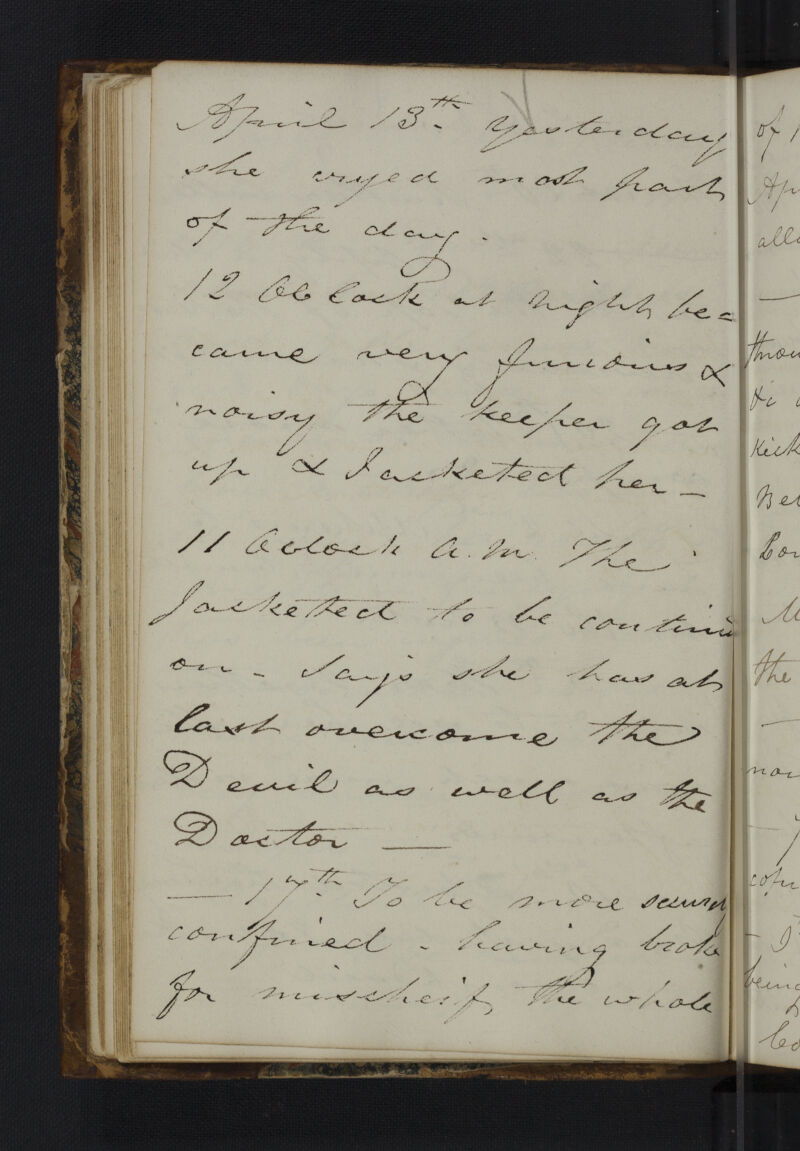 April 13th. Yesterday
she cryed most part
of the day.
12 Oclock at night be=
came very furious &
noisy the keeper got
up & Jacketed her -
11 Oclock A.M. The
Jacketed to be continu
on - Says she has at
last overcome the
Devil as well as the
Doctor —
— 17th. To be more securely
confined - having broke
for mischeif the whole
of
Ap
all
—
throu
kick
the
being